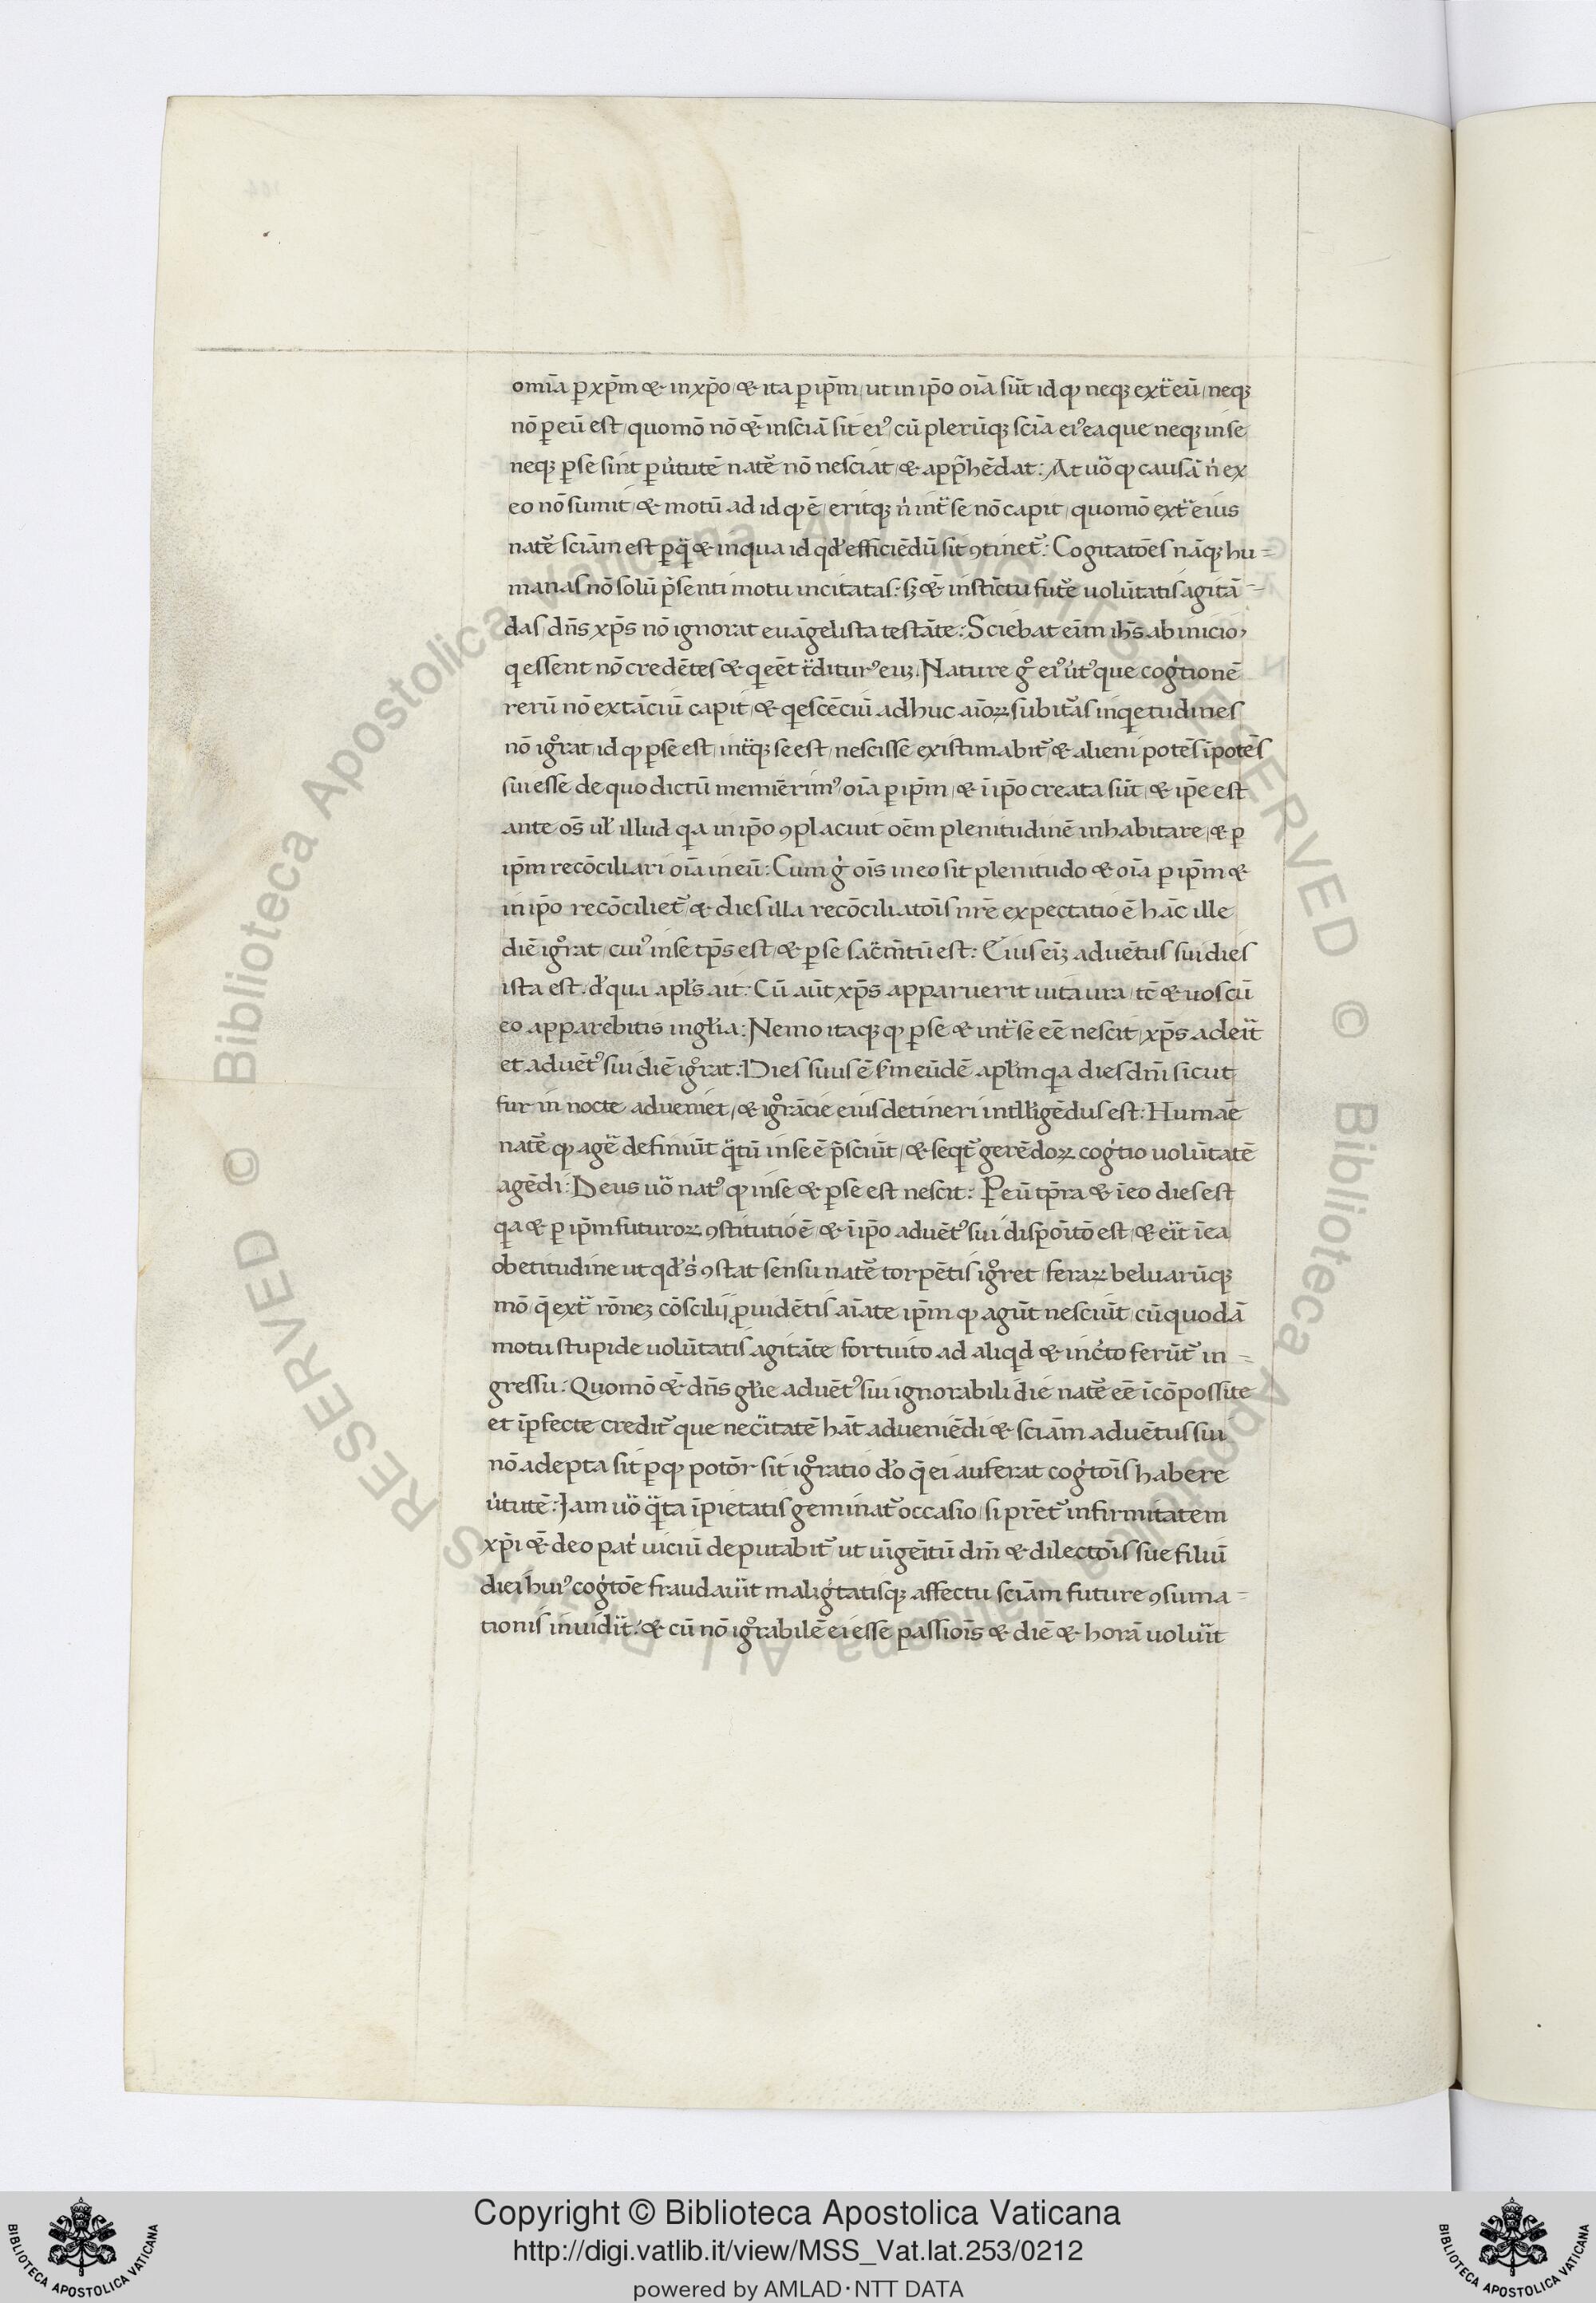 omīa ꝑ xp̄m & in xp̄o & ita ꝑ ip̄m ut in ip̄o oīa sūt id qƿ neqꝫ ext̄ eū neqꝫ
nō ꝑ eū est quomō nō & in sciā sit eiꝰ cū plerūqꝫ scīa eiꝰ ea que neqꝫ in se
neqꝫ ꝑ se sint ꝑ ututē natē nō nesciat & app̄hēdat: At uō causā n ex
eo nō sumit & motū ad id ē eritqꝫ n int̄ se nō capit quomō ext̄ eius
natē sciām est ꝑ q̄ & in qua id qd efficiēdū sit ꝯtinet̄: Cogitatōes nāqꝫ hu=
manas nō solū p̄senti motu incitatas: sꝫ & instīctu futē uolūtatis agitā=
das dn̄s xp̄s nō ignorat euāgelista testāte: Sciebat eīm ih̄s ab inicio
q essent nō credētes & q eēt t̄diturꝰ euꝫ. Nature g eiꝰ utꝰ que cogtionē
rerū nō extāciū capit & qescēciū adhuc aīoꝝ subitās inqetudines
nō igrat id ꝑ se est int̄qꝫ se est nescisse existimabit̄ & alieni potēs īpotēs
sui esse de quo dictū memīerimꝰ oīa ꝑ ip̄m & ī ip̄o creata sūt & ip̄e est
ante os̄ ul illud qa in ip̄o ꝯplacuit oēm plenitudinē inhabitare & ꝑ
ip̄m recōciliari oīa in eū: Cum g oīs in eo sit plenitudo & oīa ꝑ ip̄m &
in ip̄o recōciliet̄ & dies illa recōciliatoīs nr̄e expectatio ē hāc ille
diē igrat cuiꝰ in se tp̄s est & ꝑ se sac̄mtū est: Eius eīꝫ aduētus sui dies
ista est. d qua apls ait: Cū aūt xp̄s apparuerit uita ura tc̄ & uos cū
eo apparebitis in glia: Nemo itaqꝫ ꝑ se & int̄ se eē nescit xp̄s adeīt
et aduētꝰ sui diē igrat. Dies suus ē sm eūdē aplm qa dies dn̄i sicut
fur in nocte adueniet & igrācie eius detineri intlligēdus est: Humāe
natē agē definiūt q̄tū in se ē p̄sciūt & seqt̄ gerēdoꝝ cogtio uolūtatē
agēdi: Deus uō natꝰ in se & ꝑ se est nescit: Ꝑ eū tp̄ra & ī eo dies est
qa & ꝑ ip̄m futuroꝝ ꝯstitutio ē & ī ip̄o aduētꝰ sui dispoitō est & eīt ī ea
obetitudine ut qd ꝯstat sensu natē torpētis igret feraꝝ beluarūqꝫ
mō q̄ ext̄ rōneꝫ cōscilij ꝓuidētis aīate ip̄m agūt nesciūt cū quodā
motu stupide uolūtatis agitāte fortuito ad aliqd & incto ferūt̄ in=
gressu: Quomō & dn̄s glie aduētꝰ sui ignorabili die natē eē īcōpossite
et īꝑfecte credit̄ que necītatē hāt adueniēdi & sciām aduētus sui
nō adepta sit ꝑ potōr sit igratio do q̄ ei auferat cogtoīs habere
ututē: Jam uō q̄ta īpietatis geminat̄ occasio si pr̄et̄ infirmitatem
xp̄i & deo pat uiciū deputabit̄ ut uīgeitū dm̄ & dilectoīs sue filiū
diei huiꝰ cogtōe fraudauīt maligtatisqꝫ affectu sciām future ꝯsuma=
tionis inuidīt: & cū nō igrabilē ei esse passioīs & diē & horā uoluīt
Copyright © Biblioteca Apostolica Vaticana
http://digi.vatlib.it/view/MSS_Vat.lat.253/0212
powered by AMLAD·NTT DATA